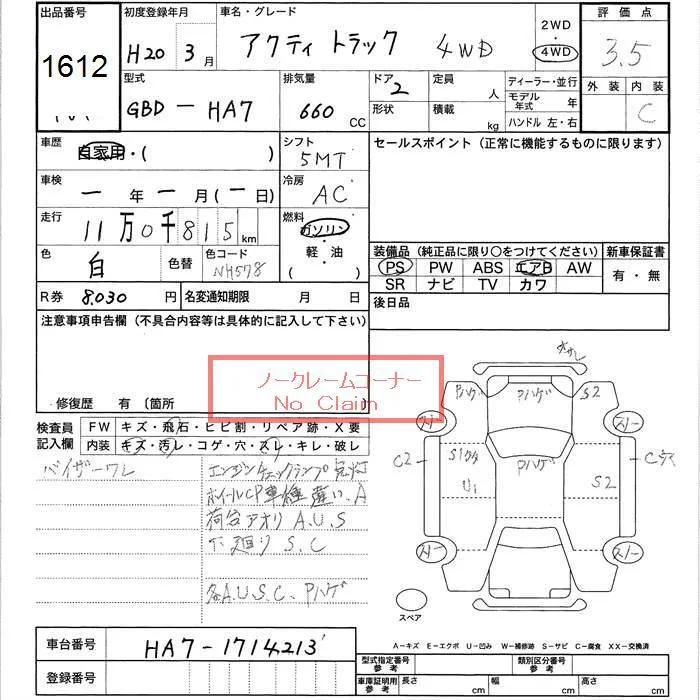 出品番号 初度登録年月 車名・グレード 2WD 評価点
1612 H20 3月 アクティ トラック 4WD 4WD 3.5
型式 排気量 ドア 定員 ディーラー・並行 外装 内装
GBD - HA7 660 CC 2 人 モデル年式 年 C
形状 積載 kg ハンドル 左・右
車歴 自家用・( ) シフト 5MT セールスポイント (正常に機能するものに限ります)
車検 一年一月(一日) 冷房 AC
走行 11万0千815km 燃料 ガソリン
軽・油
( )
色 白 色替 色コード NH578
装備品 (純正品に限り○をつけてください) 新車保証書
PS PW ABS エアB AW 有・無
SR ナビ TV カワ
R券 8,030円 名変通知期限 月 日 後日品
注意事項申告欄 (不具合内容等は具体的に記入して下さい)
ノークレームコーナー
No Claim
修復歴 有 〔箇所
検査員 FW キズ・飛石・ヒビ割・リペア跡・X要
記入欄 内装 キズ・汚レ・コゲ・穴・スレ・キレ・破レ
バイザーワレ エンジンチェックランプ点灯
ホイールCP車種違い.A
荷台アオリ A.U.S
下廻り S.C
各A.U.S.C.ハゲ
ハゲ ハゲ S2
スノー スノー
C2 ハゲ C穴
U1 S2
スノー スノー
スペア
車台番号 HA7-1714213
A−キズ E−エクボ U−凹み W−補修跡 S−サビ C−腐食 XX−交換済
登録番号 型式指定番号 参考 類別区分番号 参考
車庫証明用 参考 長さ cm 幅 cm 高さ cm